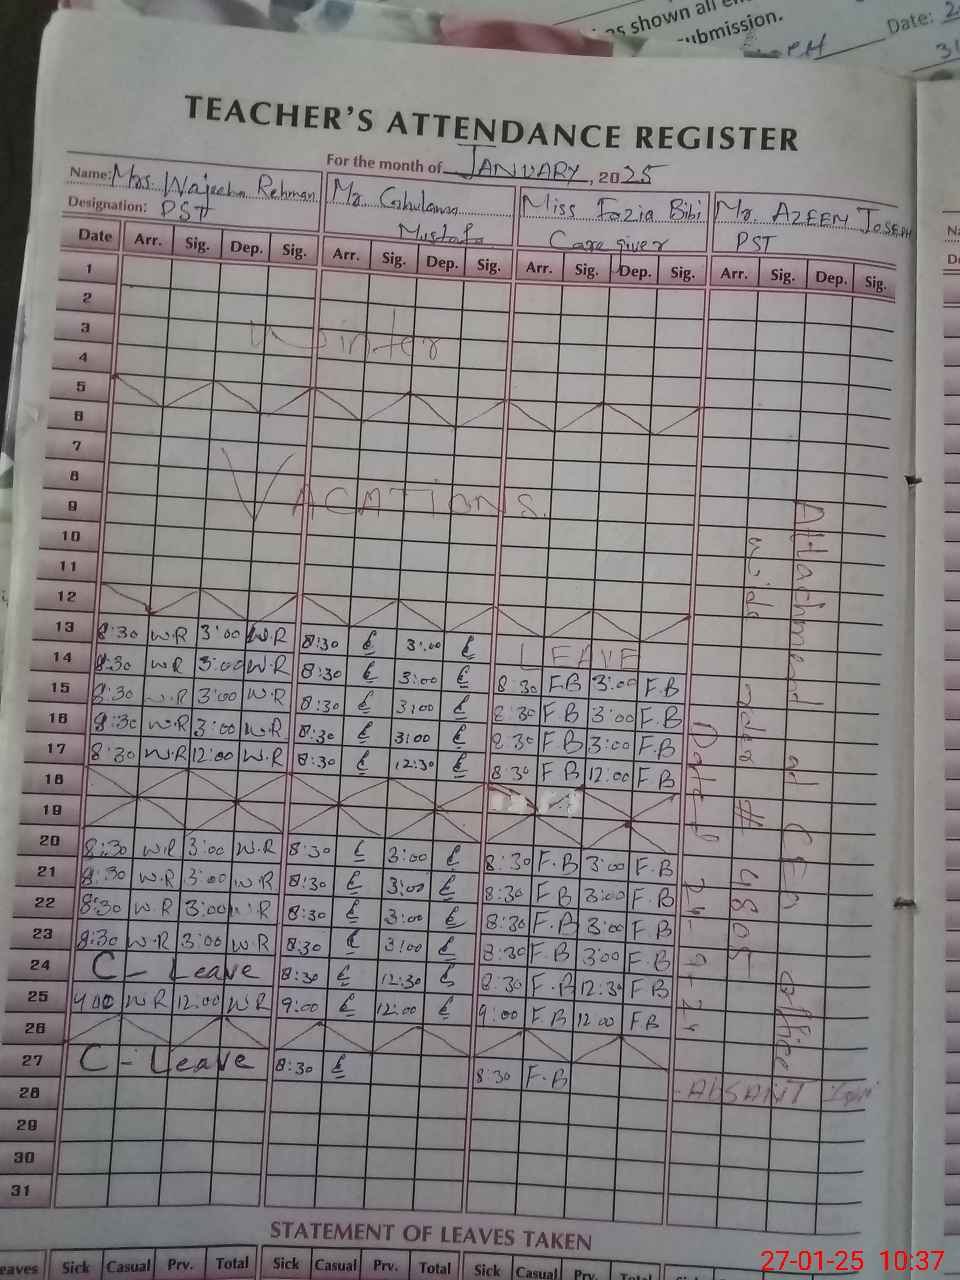 as shown all
submission.
Date:
TEACHER'S ATTENDANCE REGISTER
For the month of JANUARY, 2025
Name: Mrs Wajeeha Rehman Mr. Ghulam Mustafa Miss Fozia Bibi Mr. AZEEM JOSEPH
Designation: PST Care giver PST
Date Arr. Sig. Dep. Sig. Arr. Sig. Dep. Sig. Arr. Sig. Dep. Sig. Arr. Sig. Dep. Sig.
1
2
3 Winter
4
5
6
7
8 VACATIONS.
9
10
11
12
13 8:30 W.R 3:00 W.R 8:30 3:00 LEAVE
14 8:30 W R 3:00 W.R 8:30 3:00 8:30 F.B 3:00 F.B
15 8:30 W.R 3:00 W.R 8:30 3:00 8:30 F B 3:00 F.B
16 8:30 W.R 3:00 W.R 8:30 3:00 8:30 F.B 3:00 F.B
17 8:30 W.R 12:00 W.R 8:30 12:30 8:30 F B 12:00 F.B
18
19
20 8:30 W.R 3:00 W.R 8:30 3:00 8:30 F.B 3:00 F.B
21 8:30 W.R 3:00 W.R 8:30 3:00 8:30 F.B 3:00 F.B
22 8:30 W.R 3:00 W.R 8:30 3:00 8:30 F.B 3:00 F.B
23 8:30 W.R 3:00 W.R 8:30 3:00 8:30 F.B 3:00 F.B
24 C - Leave 8:30 12:30 8:30 F.B 12:30 F B
25 W R 12:00 W R 9:00 12:00 9:00 F.B 12:00 F.B
26
27 C - Leave 8:30 8:30 F.B
28 ABSANT
29
30
31
Attachment at CEO office
wide order # 4805
Dated 24-9-24
STATEMENT OF LEAVES TAKEN
Leaves Sick Casual Prv. Total Sick Casual Prv. Total Sick Casual Prv. Total
27-01-25 10:37